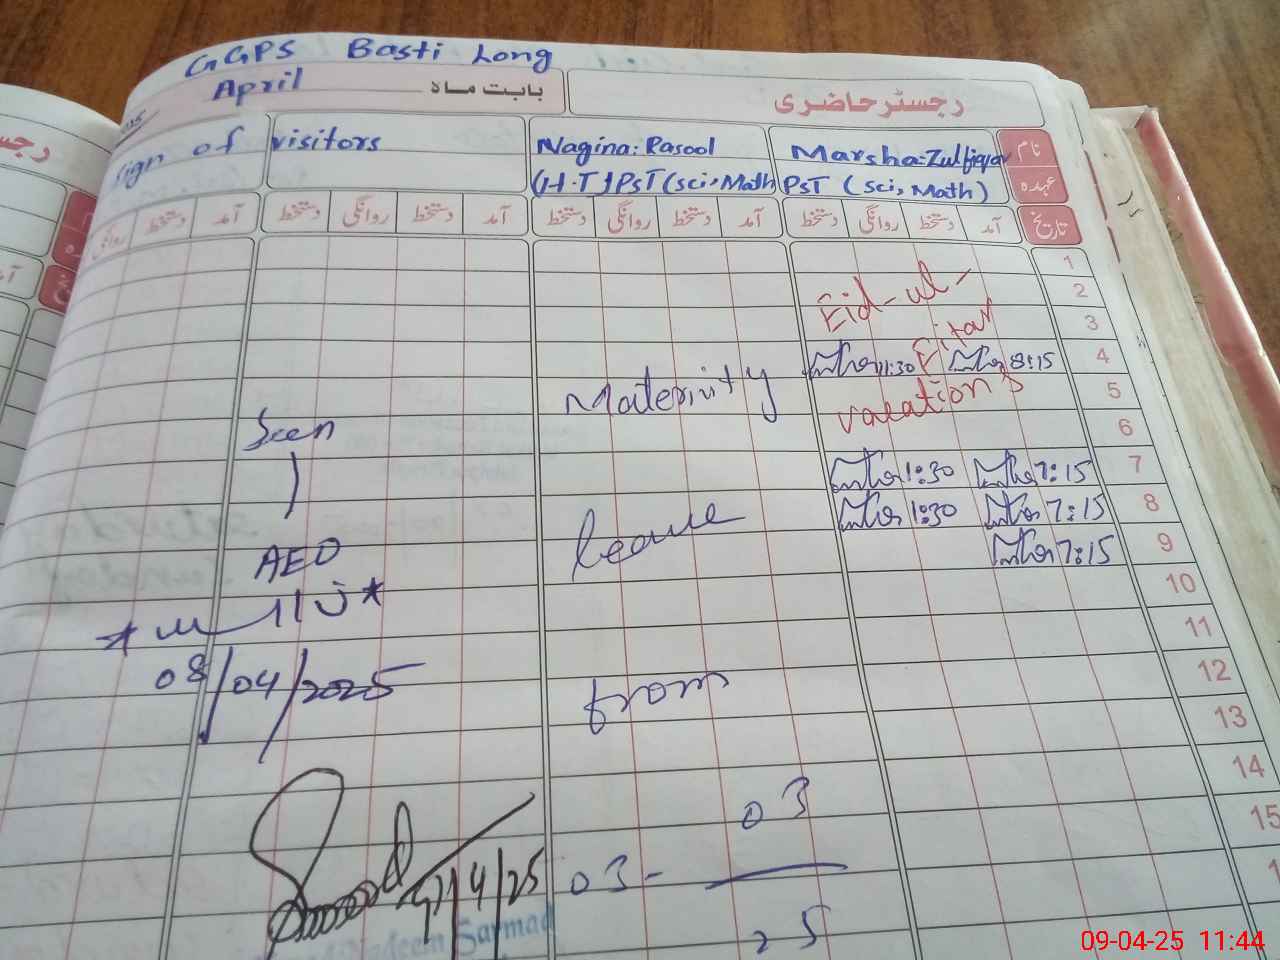 GGPS Basti Long
April
بابت ماہ
رجسٹر حاضری
sign of visitors
Nagina: Rasool
(H.T) PST (sci, Math
Marsha: Zulfiqar
PST (sci, Math)
نام
عہدہ
تاریخ
آمد دستخط روانگی دستخط
آمد دستخط روانگی دستخط
آمد دستخط روانگی دستخط
آمد دستخط روانگی
1
2
3
4
5
6
7
8
9
10
11
12
13
14
15
1
Eid-ul-
Fitar
vacations
11:30 8:15
1:30 7:15
1:30 7:15
7:15
Maternity
leave
from
03-03
25
Seen
AEO
08/04/2025
9/4/25
Nadeem Sarmad
رجس
09-04-25 11:44